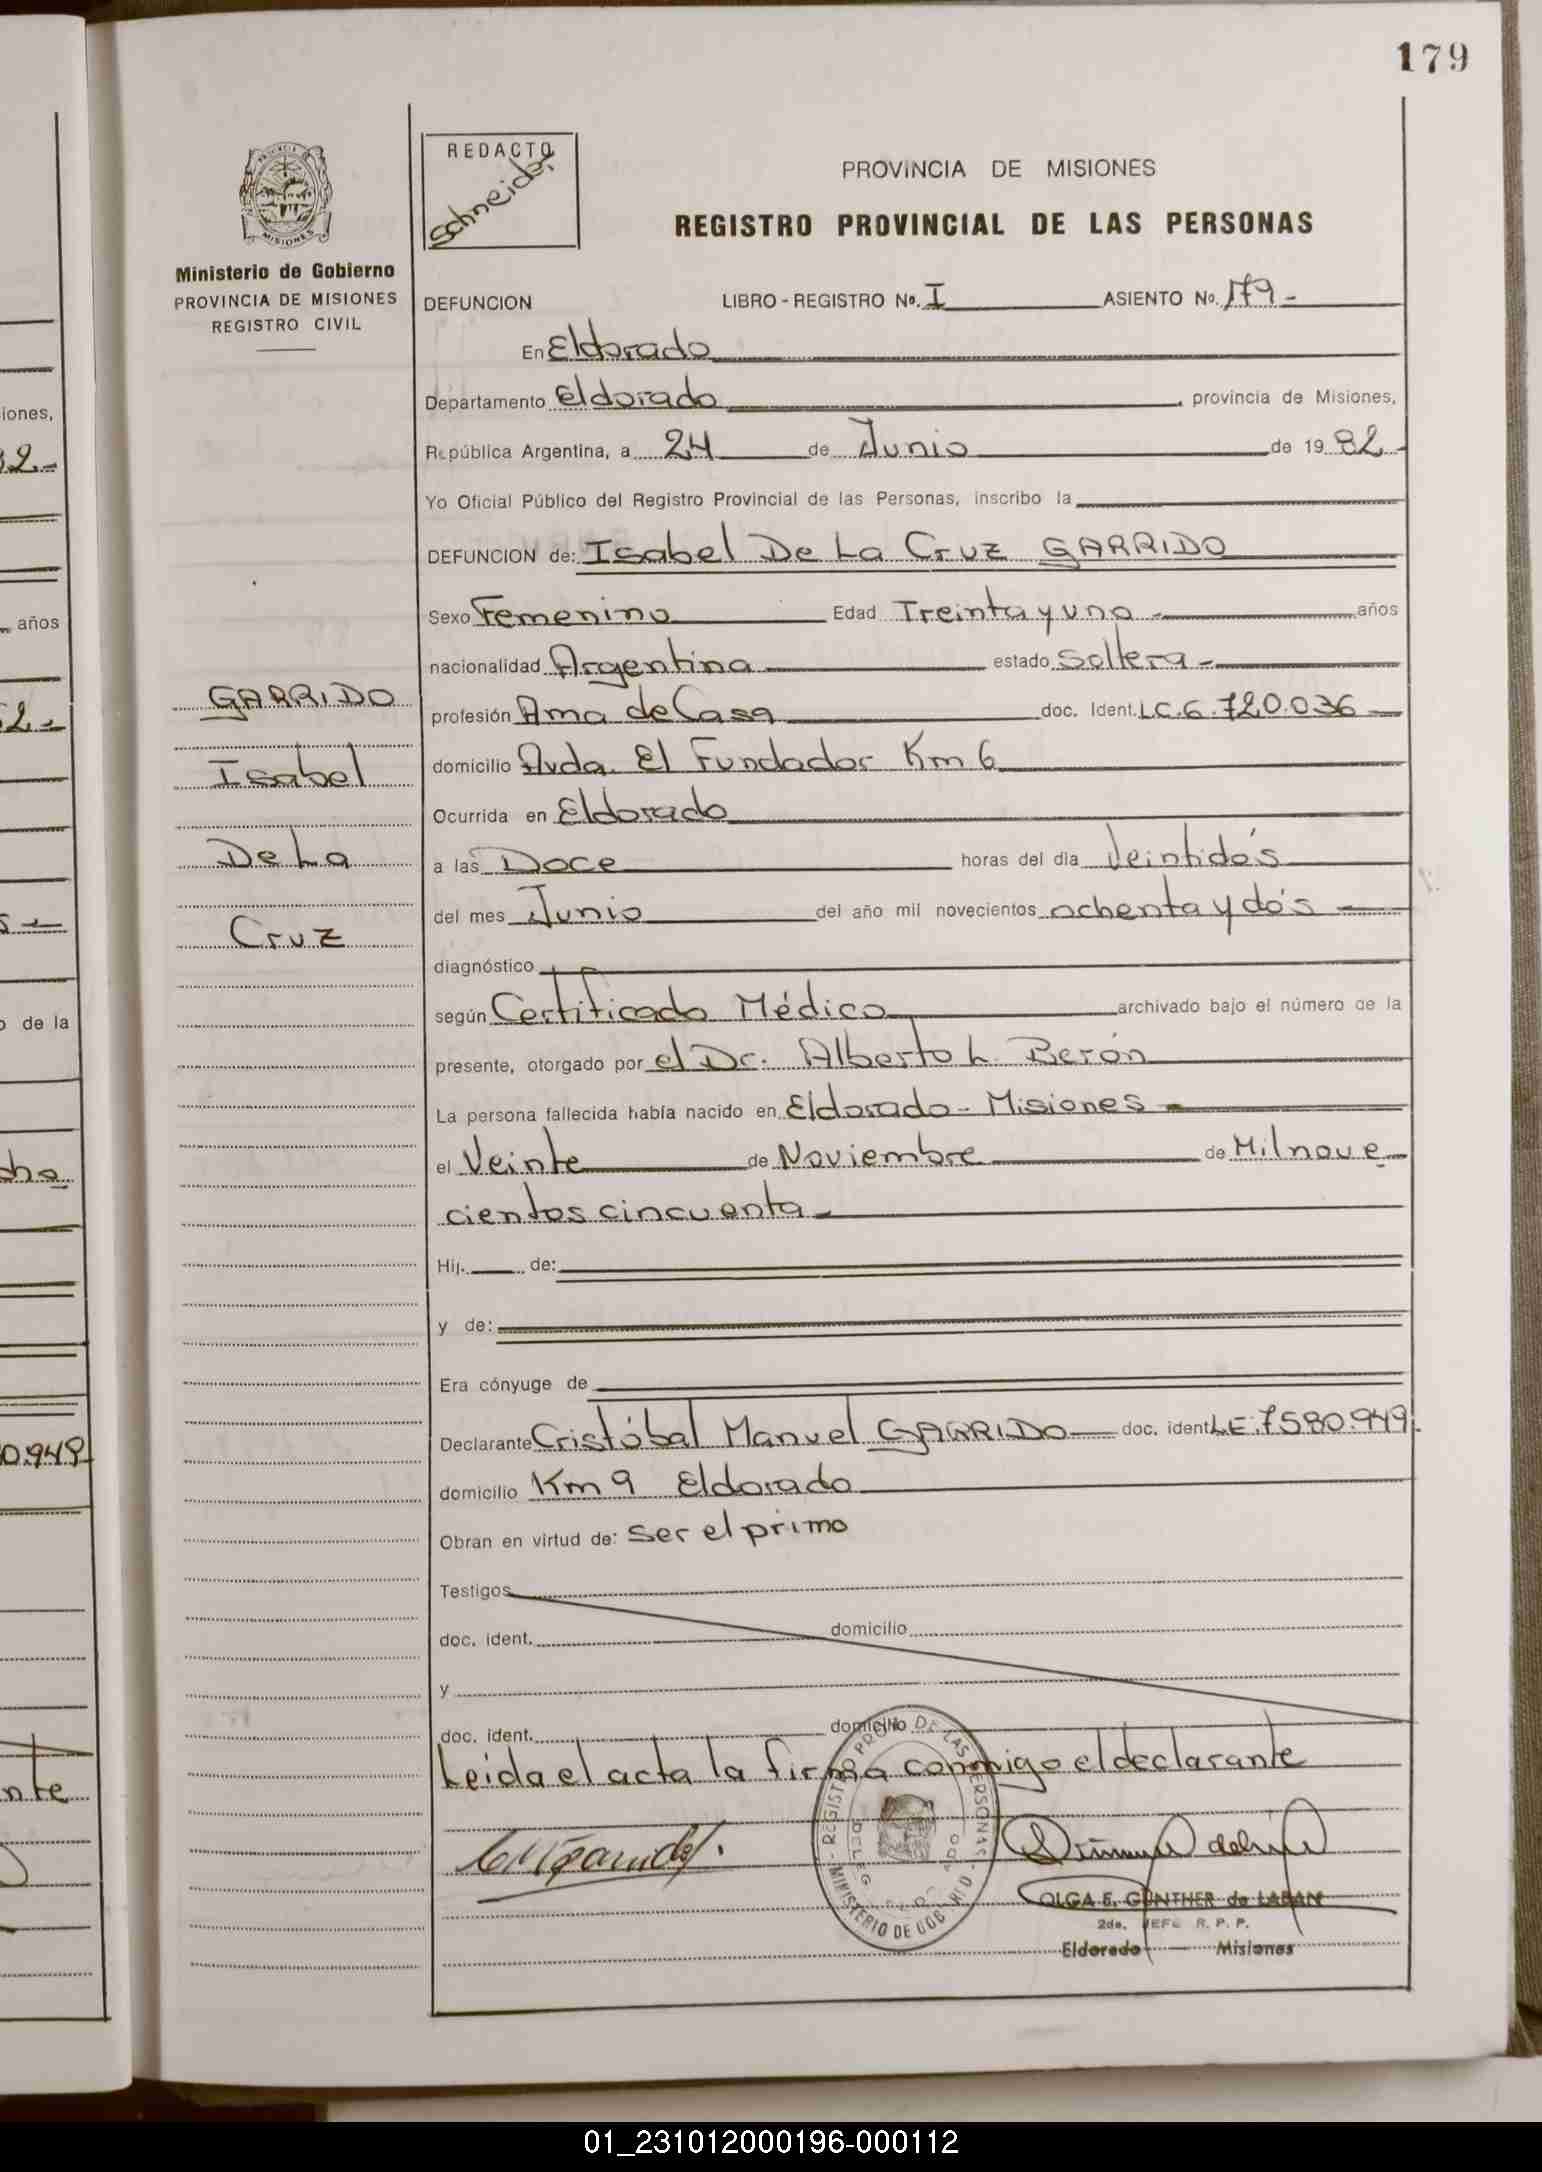 179
REDACTO
Schneider
PROVINCIA DE MISIONES
REGISTRO PROVINCIAL DE LAS PERSONAS
MISIONES
Ministerio de Gobierno
PROVINCIA DE MISIONES
REGISTRO CIVIL
DEFUNCION LIBRO - REGISTRO No. I ASIENTO No. 179 -
En Eldorado
Departamento Eldorado, provincia de Misiones,
República Argentina, a 24 de Junio de 1982 -
Yo Oficial Público del Registro Provincial de las Personas, inscribo la
DEFUNCION de: Isabel De La Cruz GARRIDO
Sexo Femenino Edad Treinta y uno - años
nacionalidad Argentina estado Soltera -
profesión Ama de Casa doc. Ident. L.C. 6.720.036
domicilio Avda. El Fundador Km 6
Ocurrida en Eldorado
a las Doce horas del día Veintidós
del mes Junio del año mil novecientos ochenta y dós
diagnóstico
según Certificado Médico archivado bajo el número de la
presente, otorgado por el Dr. Alberto L. Berón
La persona fallecida había nacido en Eldorado - Misiones -
el Veinte de Noviembre de Mil nove
cientos cincuenta -
Hij. de:
y de:
Era cónyuge de
Declarante Cristóbal Manuel GARRIDO doc. ident. L.E. 7580.949.
domicilio Km 9 Eldorado
Obran en virtud de: Ser el primo
Testigos
doc. ident. domicilio
y
doc. ident. domicilio
Leida el acta la firma conmigo el declarante
GARRIDO
Isabel
De La
Cruz
REGISTRO PROV. DE LAS PERSONAS
MINISTERIO DE GOB.
OLGA E. GÜNTHER de LABAN
2da. JEFE R. P. P.
Eldorado Misiones
iones,
82 -
años
82 -
o de la
cho
0.949
nte
01_231012000196-000112